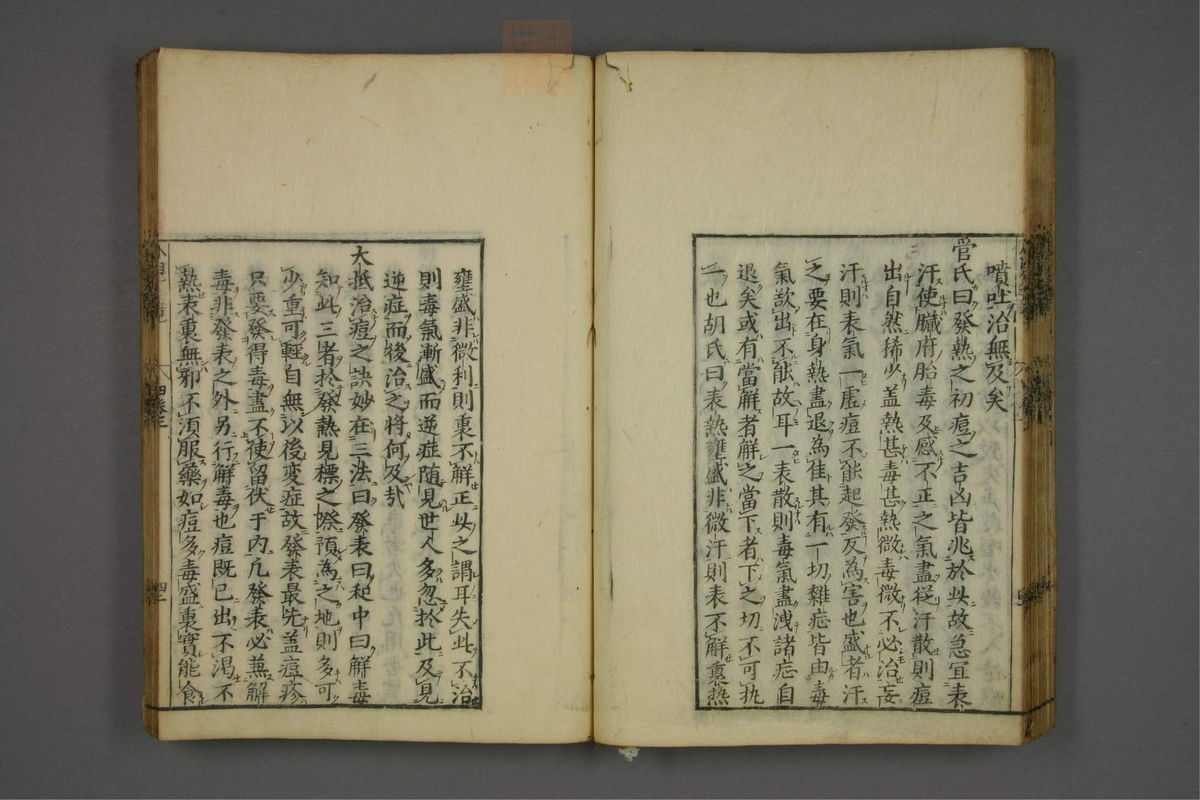 噴吐治無及矣
管氏曰發熱之初痘之吉凶皆兆於此故急宜表
汗使臟府胎毒及感不正之氣盡従汗散則痘
出自然稀少盖熱甚毒甚熱微毒微不必治妄
汗則表氣一虛痘不能起發反為害也盛者汗
之要在身熱盡退為佳其有一切雜症皆由毒
氣欲出不能故耳一表散則毒氣盡洩諸症自
退矣或有當解者解之當下者下之切不可執
一也胡氏曰表熱壅盛非微汗則表不解裏熱
壅盛非微利則裏不解正此之謂耳失此不治
則毒氣漸盛而逆症随見世人多忽於此及見
逆症而後治之将何及哉
大抵治痘之訣妙在三法曰發表曰和中曰解毒
知此三者於發熱見標之際預為之地則多可
少重可輕自無以後変症故發表最先盖痘疹
只要發得毒盡不使留伏于内凢發表必兼解
毒非發表之外另行解毒也痘既已出不渇不
熱表裏無邪不湏服藥如痘多毒盛裏實能食